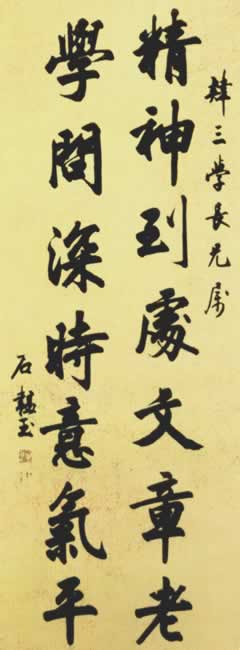 三學長兄属
精神到處文章老
學問深時意氣平
石韞玉